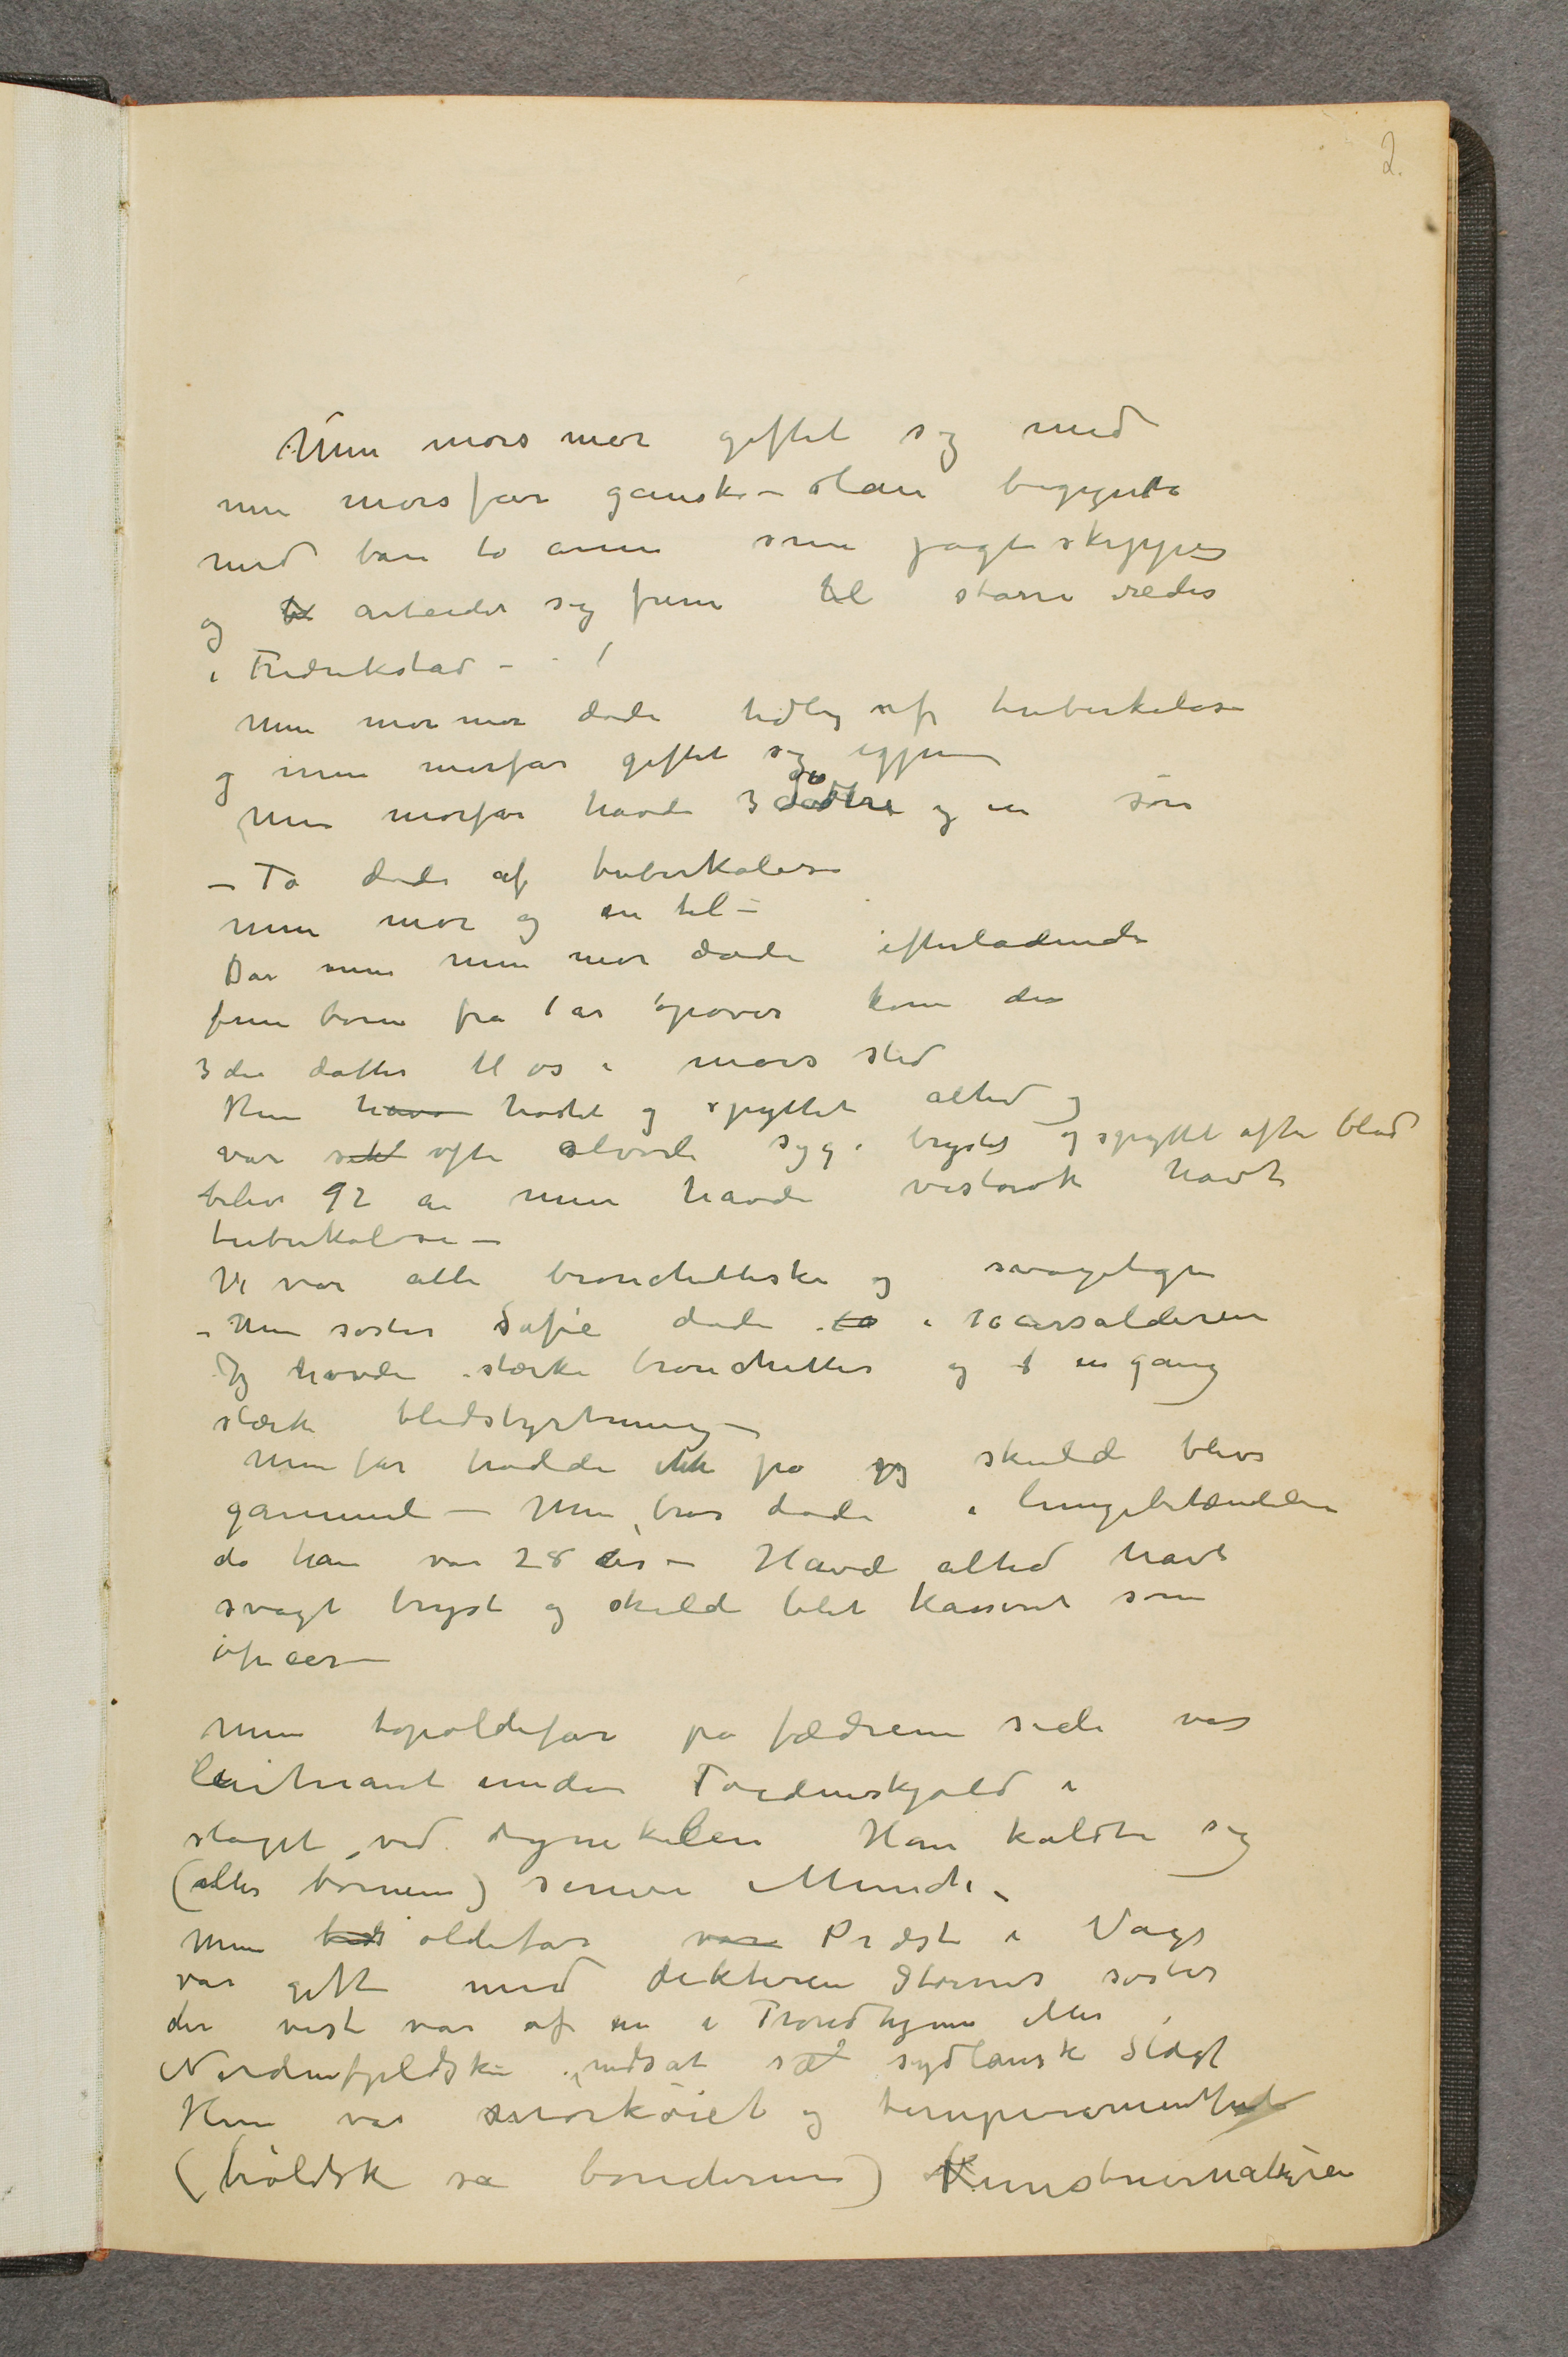 2.
Min mors mor giftet sig med
min morsfar ganske – Han begynte
med bare to arme som jagtskipper
og bl arbeidet sig frem til større reder
i Fredrikstad – – /
Min mor mor døde tidlig af tuberkulose
og min morfar giftet sig igjen
Min morfar havde 3 døttre og en søn
– To døde af tuberkolose
min mor og en til –
Da min mor døde efterladende
fem børn fra 1 år opover kom den
3die datter til os i mors sted
Hun havd hostet og spyttet altid og
var ofte alvorli syg i brystet og spyttet ofte blod
blev 92 år men havde vistnok havt
tuberkolose –
Vi var alle bronchittiske og svagelige
– Min søster Sofie døde i 16 årsalderen
Jeg havde stærke bronchitter og en gang
stærk blodstyrtning –
Min far trodde ikke på jeg skulde blive
gammel – Min bror døde i lungebetændelse
da han var 28 år – Havde altid havt
svagt bryst og skulde blit kasseret som
oficer –
Min tipoldefar på fædrene side var
leitnant under Tordenskjold i
slaget ved dynekilen Han kaldte sig
(eller børnene) senere Munch –
Min oldefar var Præst i Vågå
var gift med dikteren Storms søster
der vist var af en i Trondhjem eller i
Nordenfjeldske nedsat sydlansk Slægt
Hun var mørkøiet og temperamentfuld
(troldsk sa bønderne) Kunstnernaturen